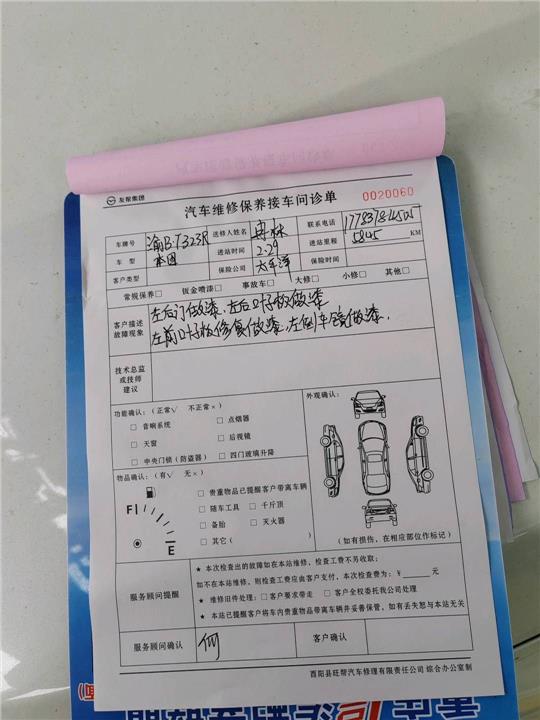 友帮集团
汽车维修保养接车问诊单 0020060
车牌号 渝B·T323R 送修人姓名 冉林 联系电话
车 型 进站时间 2.29 进站里程 5845 KM
客户类型 保险公司 太平洋 保险时间
常规保养□ 钣金喷漆□ 事故车□ 大修□ 小修□ 其他□
客户描述
故障现象
左后门做漆.左后叶子板做漆
左前叶子板修复做漆.左倒车镜做漆.
技术总监
或技师
建议
功能确认:(正常√ 不正常×) 外观确认:
□ 音响系统 □ 点烟器
□ 天窗 □ 后视镜
□ 中央门锁(防盗器) □ 四门玻璃升降
物品确认:(有√ 无×)
□ 贵重物品已提醒客户带离车辆
□ 随车工具 □ 千斤顶
□ 备胎 □ 灭火器
□ 其它(
F
E
(如有损伤，在相应部位作标记)
服务顾问提醒
★ 本次检查出的故障如在本站维修，检查工费不另收取;
如不在本站维修，则检查工费应由客户支付，本次检查费为:￥______元
★ 维修旧件处理:□ 客户要求带走 □ 客户全权委托我公司处理
★ 本站已提醒客户将车内贵重物品带离车辆并妥善保管，如有丢失恕与本站无关
服务顾问确认 何 客户确认
酉阳县旺帮汽车修理有限责任公司 综合办公室制